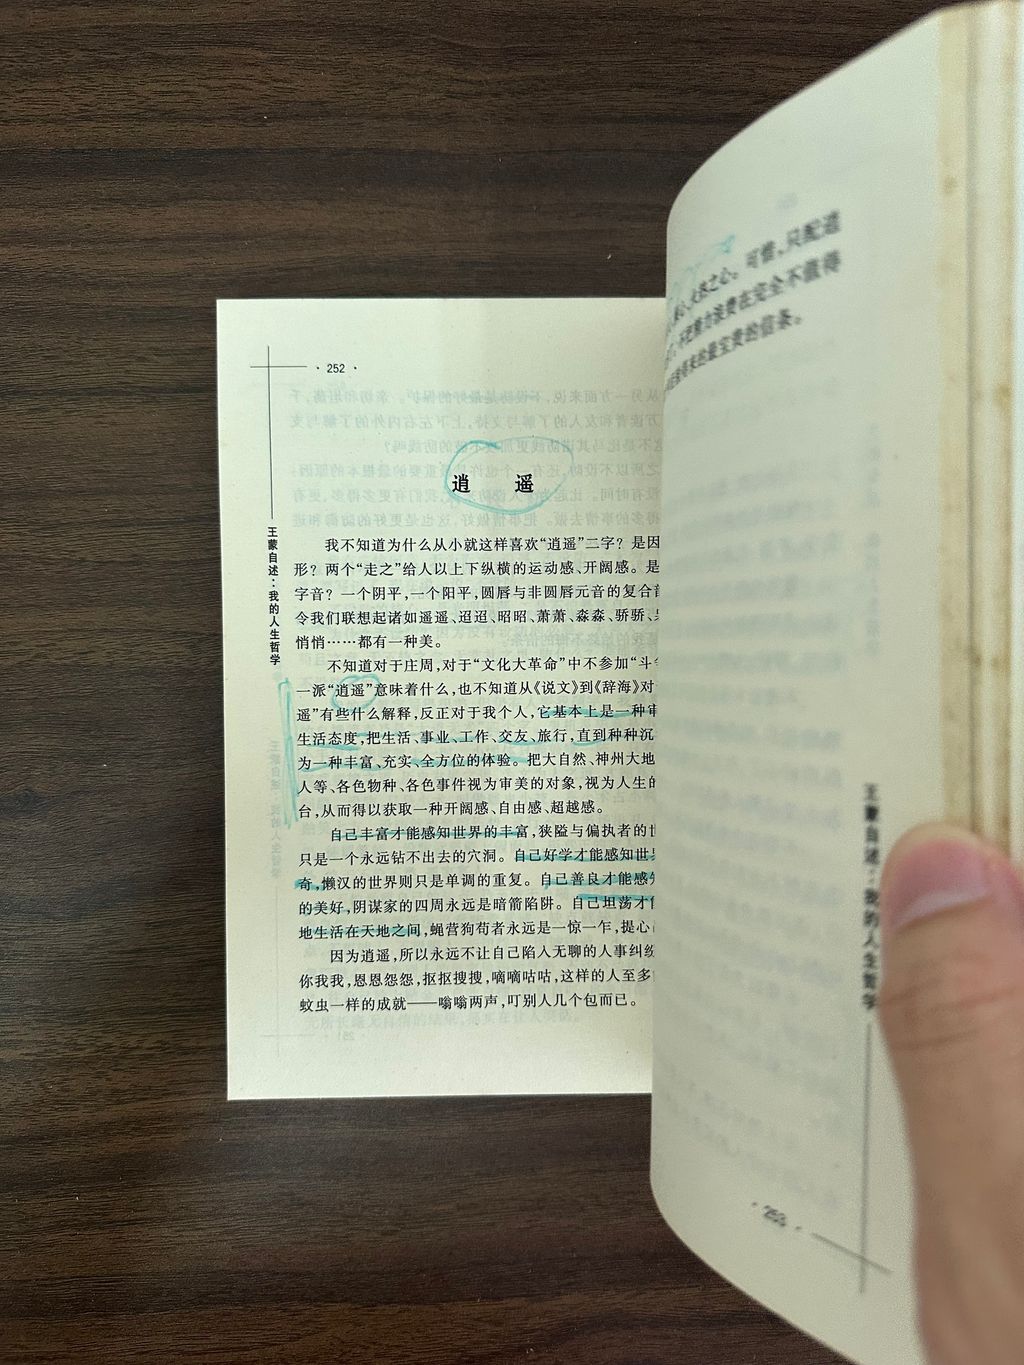 · 252 ·
逍 遥
我不知道为什么从小就这样喜欢“逍遥”二字？是因
形？两个“走之”给人以上下纵横的运动感、开阔感。是
字音？一个阴平，一个阳平，圆唇与非圆唇元音的复合音
令我们联想起诸如遥遥、迢迢、昭昭、萧萧、淼淼、骄骄、
悄悄……都有一种美。
不知道对于庄周，对于“文化大革命”中不参加“斗
一派“逍遥”意味着什么，也不知道从《说文》到《辞海》对
遥”有些什么解释，反正对于我个人，它基本上是一种审
生活态度，把生活、事业、工作、交友、旅行，直到种种沉
为一种丰富、充实、全方位的体验。把大自然、神州大地
人等、各色物种、各色事件视为审美的对象，视为人生的
台，从而得以获取一种开阔感、自由感、超越感。
自己丰富才能感知世界的丰富，狭隘与偏执者的世
只是一个永远钻不出去的穴洞。自己好学才能感知世界
奇，懒汉的世界则只是单调的重复。自己善良才能感知
的美好，阴谋家的四周永远是暗箭陷阱。自己坦荡才能
地生活在天地之间，蝇营狗苟者永远是一惊一乍，提心
因为逍遥，所以永远不让自己陷入无聊的人事纠纷
你我我，恩恩怨怨，抠抠搜搜，嘀嘀咕咕，这样的人至多
蚊虫一样的成就——嗡嗡两声，叮别人几个包而已。
王蒙自述：我的人生哲学
之心。可惜，只配逍
不把精力浪费在完全不值得
得来的最宝贵的信条。
王蒙自述：我的人生哲学
· 253 ·